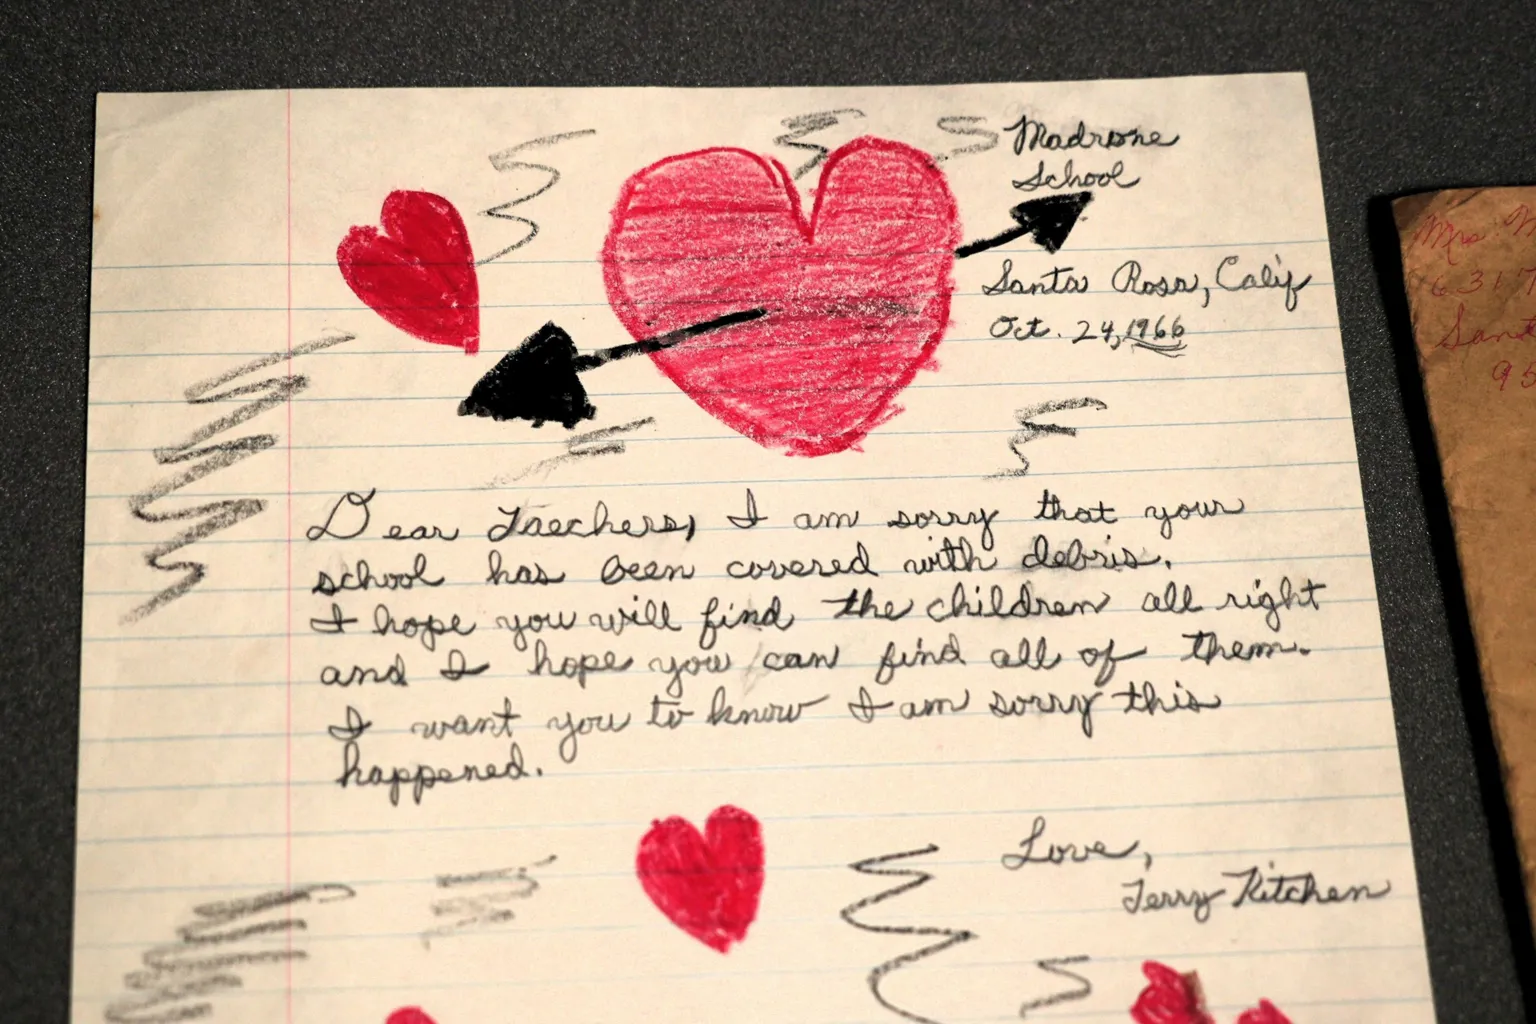 Madrone
School
Santa Rosa, Calif
Oct. 24, 1966
Dear Taechers, I am sorry that your
school has been covered with debris.
I hope you will find the children all right
and I hope you can find all of them.
I want you to know I am sorry this
happened.
Love,
Terry Kitchen
Mrs
6317
Santa
95